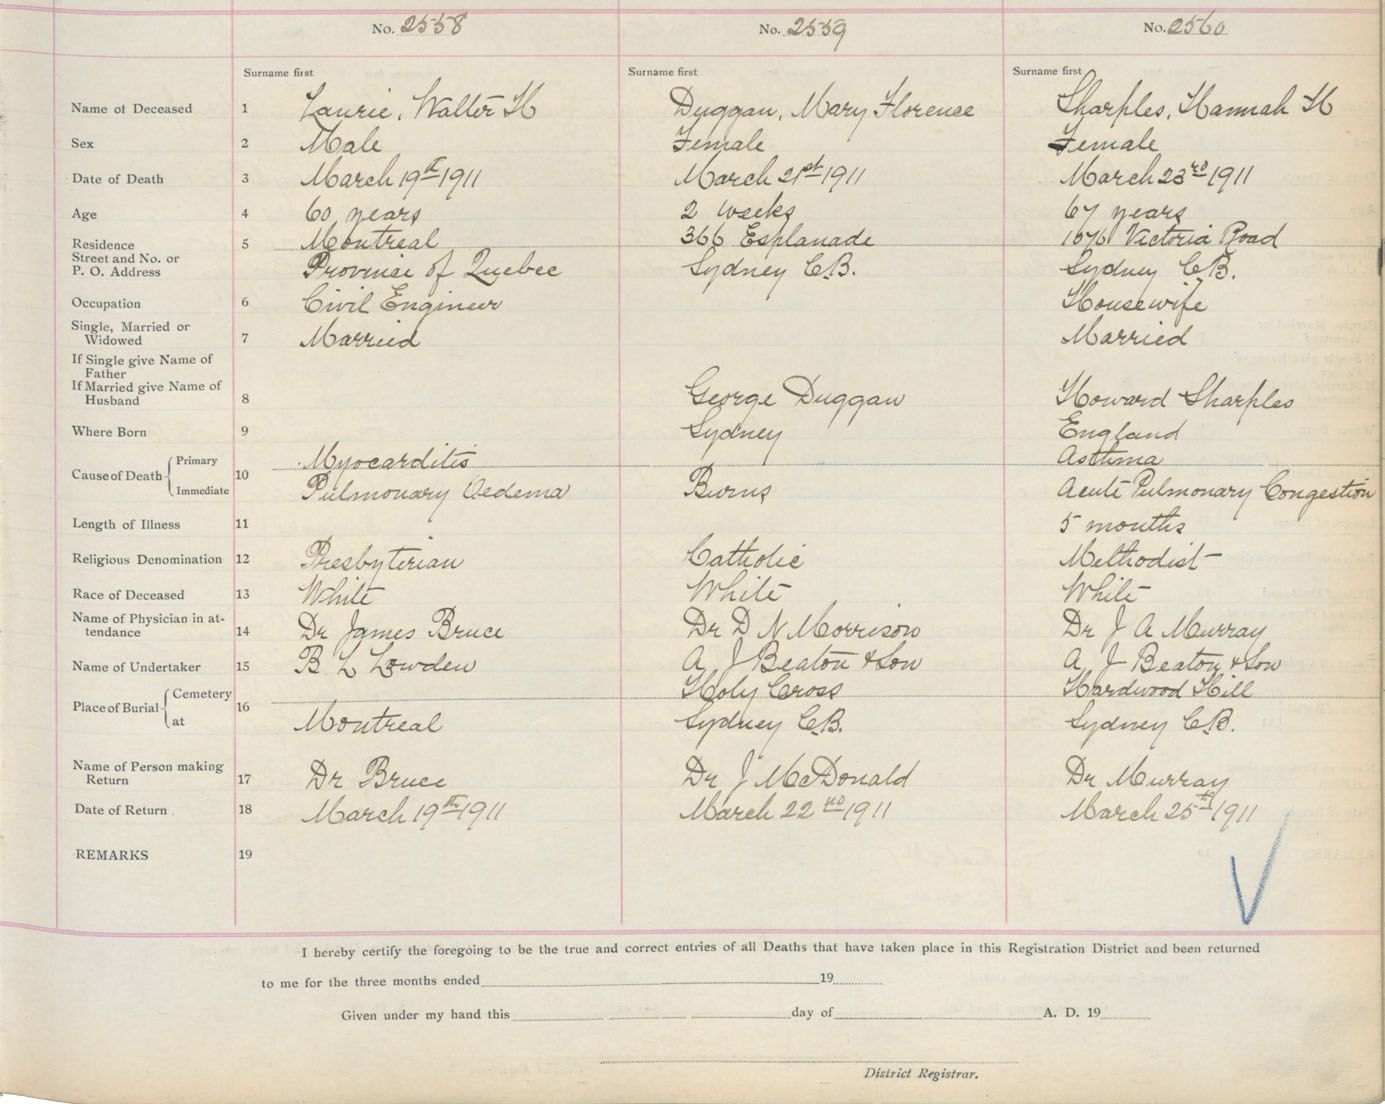 No. 2558 No. 2559 No. 2560
Surname first Surname first Surname first
Name of Deceased 1 Laurie, Walter H Duggan, Mary Florence Sharples, Hannah H
Sex 2 Male Female Female
Date of Death 3 March 19th 1911 March 21st 1911 March 23rd 1911
Age 4 60 years 2 weeks 67 years
Residence 5 Montreal 366 Esplanade Victoria Road
Street and No. or
P. O. Address Province of Quebec Sydney C.B. Sydney C.B.
Occupation 6 Civil Engineer Housewife
Single, Married or
Widowed 7 Married Married
If Single give Name of
Father
If Married give Name of
Husband 8 George Duggan Howard Sharples
Where Born 9 Sydney England
Cause of Death 10
Primary Myocarditis Asthma
Immediate Pulmonary Oedema Burns Acute Pulmonary Congestion
Length of Illness 11 5 months
Religious Denomination 12 Presbyterian Catholic Methodist
Race of Deceased 13 White White White
Name of Physician in at-
tendance 14 Dr James Bruce Dr D N Morrison Dr J A Murray
Name of Undertaker 15 B L Lowden A J Beaton & Son A J Beaton & Son
Place of Burial 16
Cemetery Holy Cross Hardwood Hill
at Montreal Sydney C.B. Sydney C.B.
Name of Person making
Return 17 Dr Bruce Dr J McDonald Dr Murray
Date of Return 18 March 19th 1911 March 22nd 1911 March 25th 1911
REMARKS 19
I hereby certify the foregoing to be the true and correct entries of all Deaths that have taken place in this Registration District and been returned
to me for the three months ended 19
Given under my hand this day of A. D. 19
District Registrar.